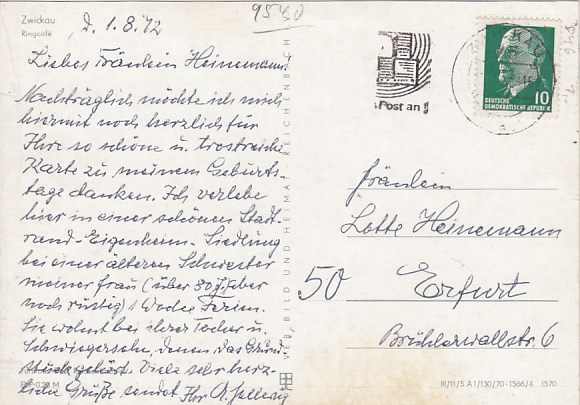 Zwickau
Ringcafé
d. 1.8.72
Liebes Fräulein Heinemann!
Nachträglich möchte ich mich
hiermit noch herzlich für
Ihre so schöne u. trostreiche
Karte zu meinem Geburts-
tage danken. Ich verlebe
hier in einer schönen Stadt-
rand-Eigenheim-Siedlung
bei einer älteren Schwester
meiner Frau (über 80 J.) aber
noch rüstig 1 Woche Ferien.
Sie wohnt bei ihrer Tochter u.
Schwiegersohn, denen das Grund-
stück gehört. Viele sehr herz-
liche Grüße sendet Ihr
VEB BILD UND HEIMAT REICHENBACH
9540
Post an
DEUTSCHE
DEMOKRATISCHE REPUBLIK
10
Fräulein
Lotte Heinemann
50 Erfurt
Brühlerwallstr. 6
III/11/5 A1/130/70-1566/4 1570